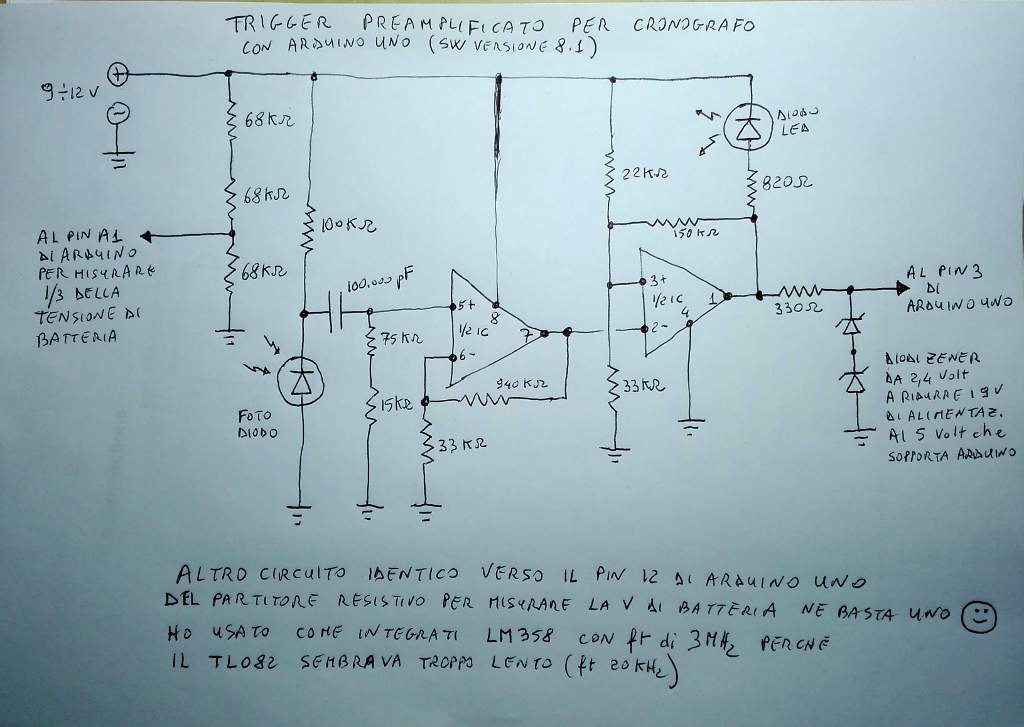 TRIGGER PREAMPLIFICATO PER CRONOGRAFO
CON ARDUINO UNO (SW VERSIONE 8.1)
+
9÷12 V
−
68KΩ
68KΩ
68KΩ
AL PIN A1
DI ARDUINO
PER MISURARE
1/3 DELLA
TENSIONE DI
BATTERIA
100KΩ
100.000 pF
FOTO
DIODO
75KΩ
15KΩ
5+
8
1/2 IC
7
6-
940KΩ
33KΩ
22KΩ
150KΩ
3+
1/2 IC
1
2-
4
33KΩ
DIODO
LED
820Ω
330Ω
AL PIN 3
DI
ARDUINO UNO
DIODI ZENER
DA 2,4 Volt
A RIDURRE I 9V
DI ALIMENTAZ.
AI 5 Volt che
SOPPORTA ARDUINO
ALTRO CIRCUITO IDENTICO VERSO IL PIN 12 DI ARDUINO UNO
DEL PARTITORE RESISTIVO PER MISURARE LA V DI BATTERIA NE BASTA UNO
HO USATO COME INTEGRATI LM358 CON ft di 3MHz PERCHÉ
IL TL082 SEMBRAVA TROPPO LENTO (ft 20KHz)